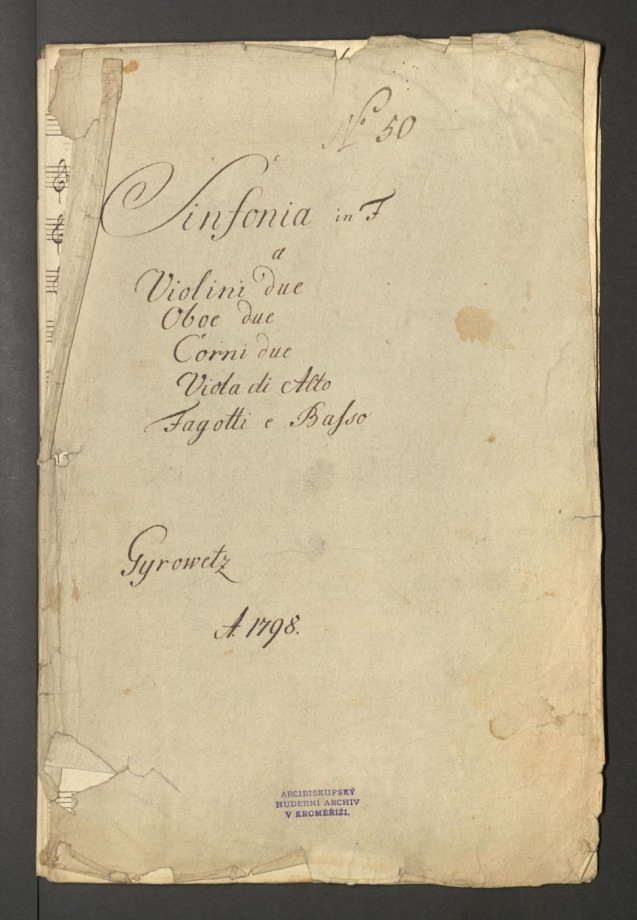 No 50
Sinfonia in F
a
Violini due
Oboe due
Corni due
Viola di Alto
Fagotti e Baſso
Gyrowetz
A. 1798.
ARCIBISKUPSKÝ
HUDEBNÍ ARCHIV
V KROMĚŘÍŽI.